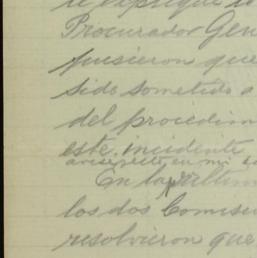 te explique lo
Procurador Gen
pusieron que
sido sometido a
del procedim
este incidente
en mi
En la ultim
los dos Comisi
resolvieron que